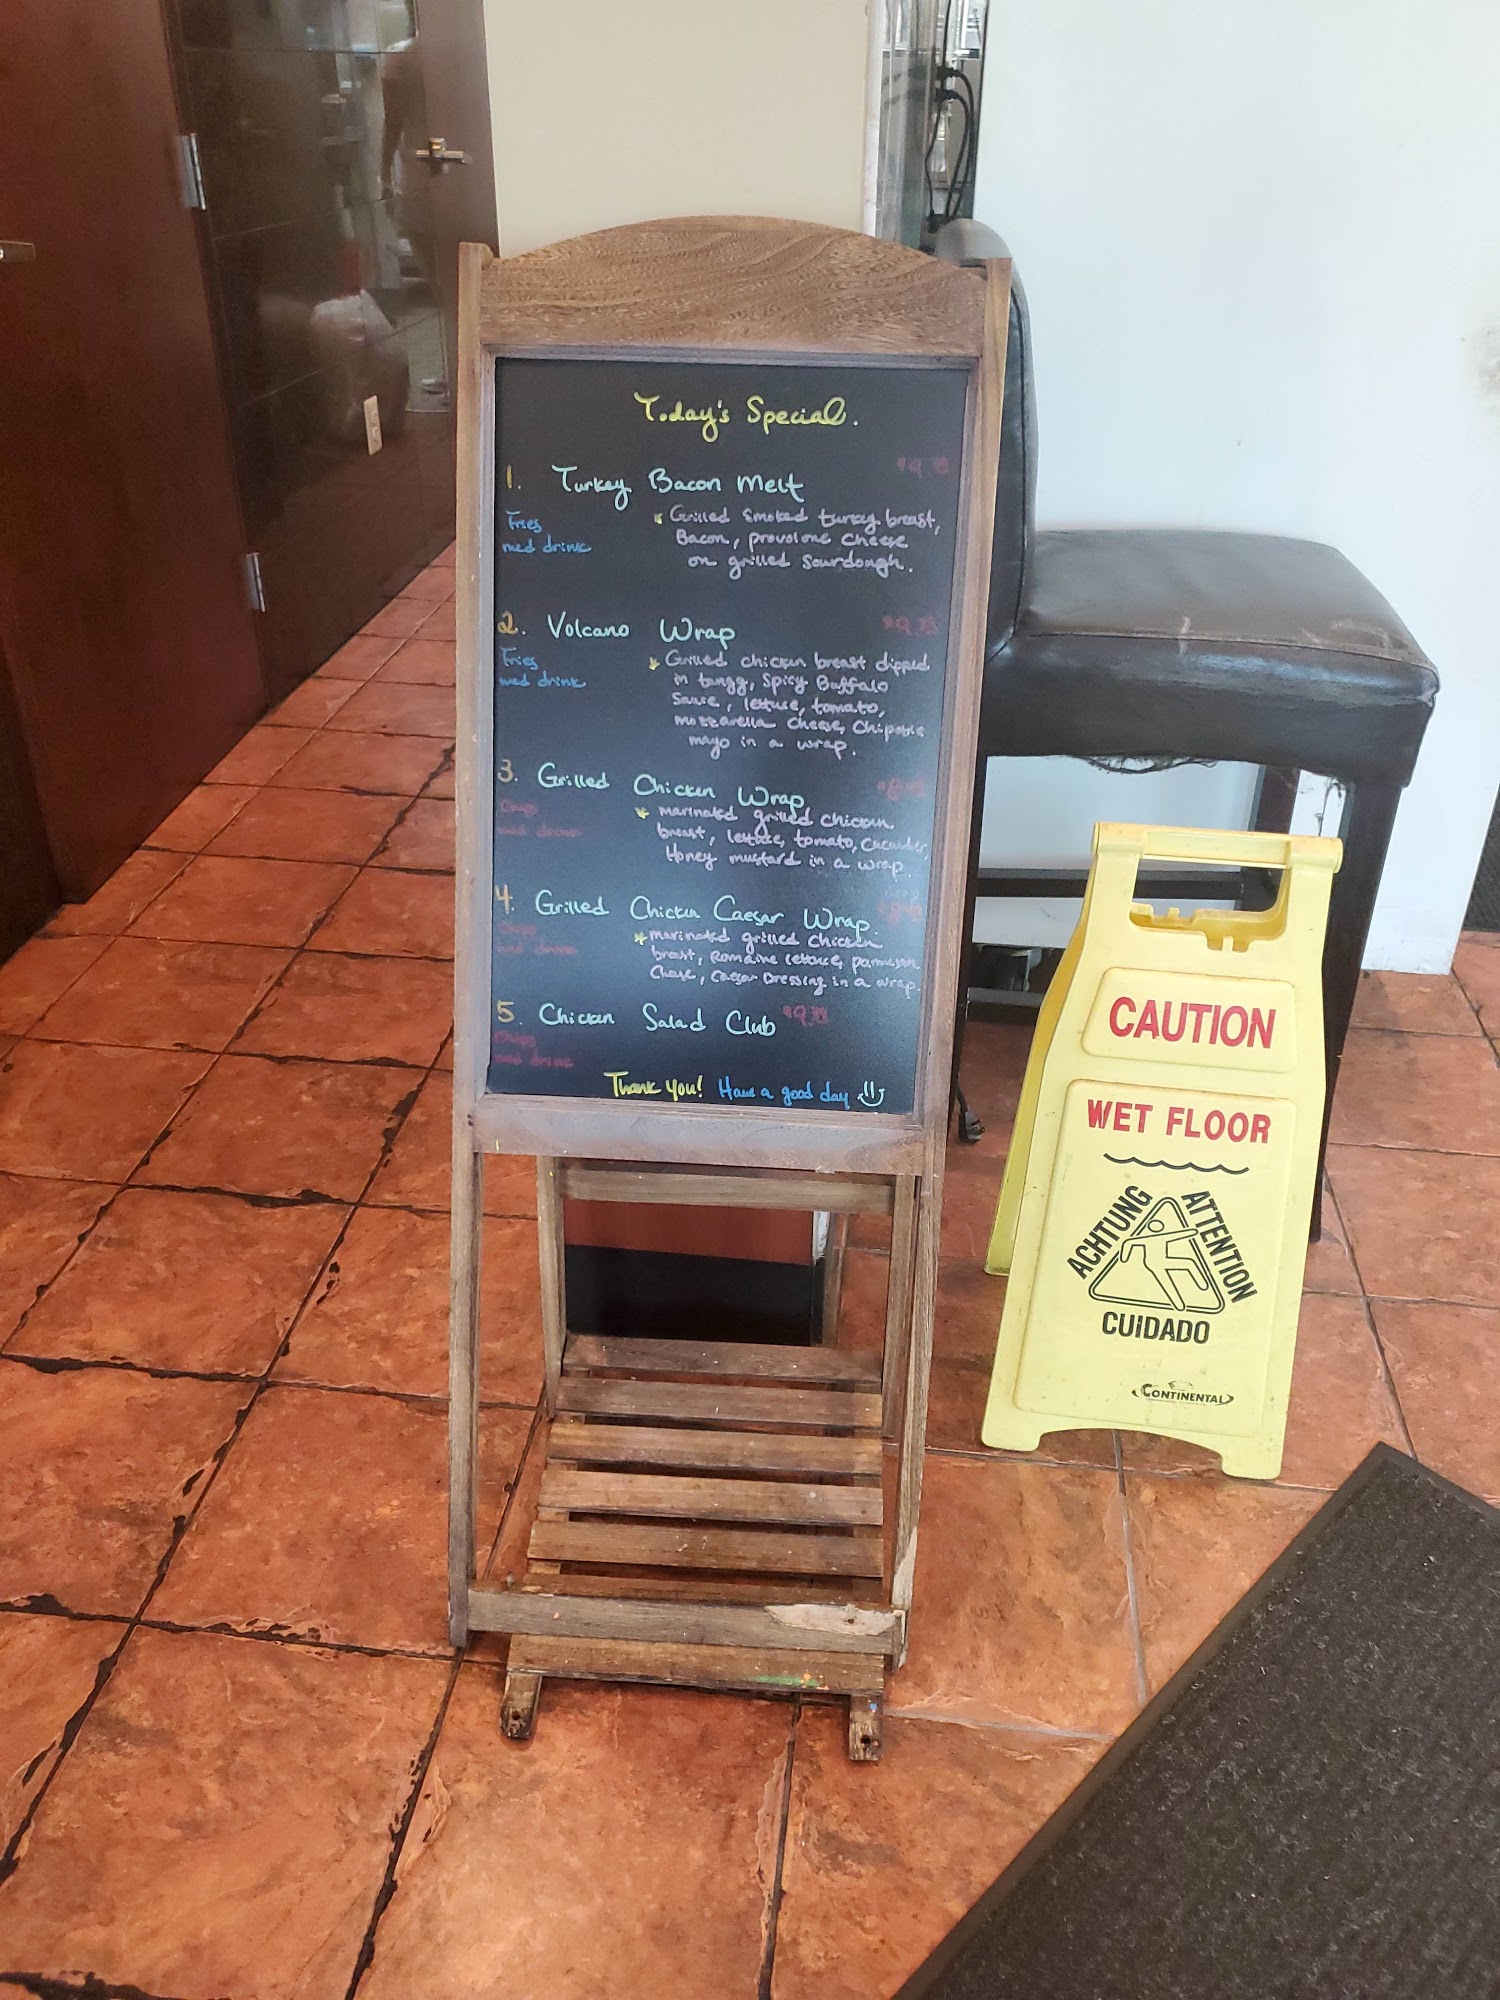 Today's Special.
1. Turkey Bacon Melt
Fries
med drink
Grilled Smoked turkey breast,
Bacon, provolone cheese
on grilled Sourdough.
2. Volcano Wrap
Fries
med drink
Grilled chicken breast dipped
in tangy, Spicy Buffalo
Sauce, lettuse, tomato,
mozzarella cheese, Chipotle
mayo in a wrap.
3. Grilled Chicken Wrap
Chips
med drink
marinated grilled chicken
breast, lettuse, tomato, cucumber,
Honey mustard in a wrap.
4. Grilled Chicken Caesar Wrap.
Chips
med drink
marinated grilled chicken
breast, Romaine lettuse, parmesan
Chese, Caesar Dressing in a wrap.
5. Chicken Salad Club
Chips
med drink
Thank you! Have a good day
CAUTION
WET FLOOR
ACHTUNG
ATTENTION
CUIDADO
CONTINENTAL